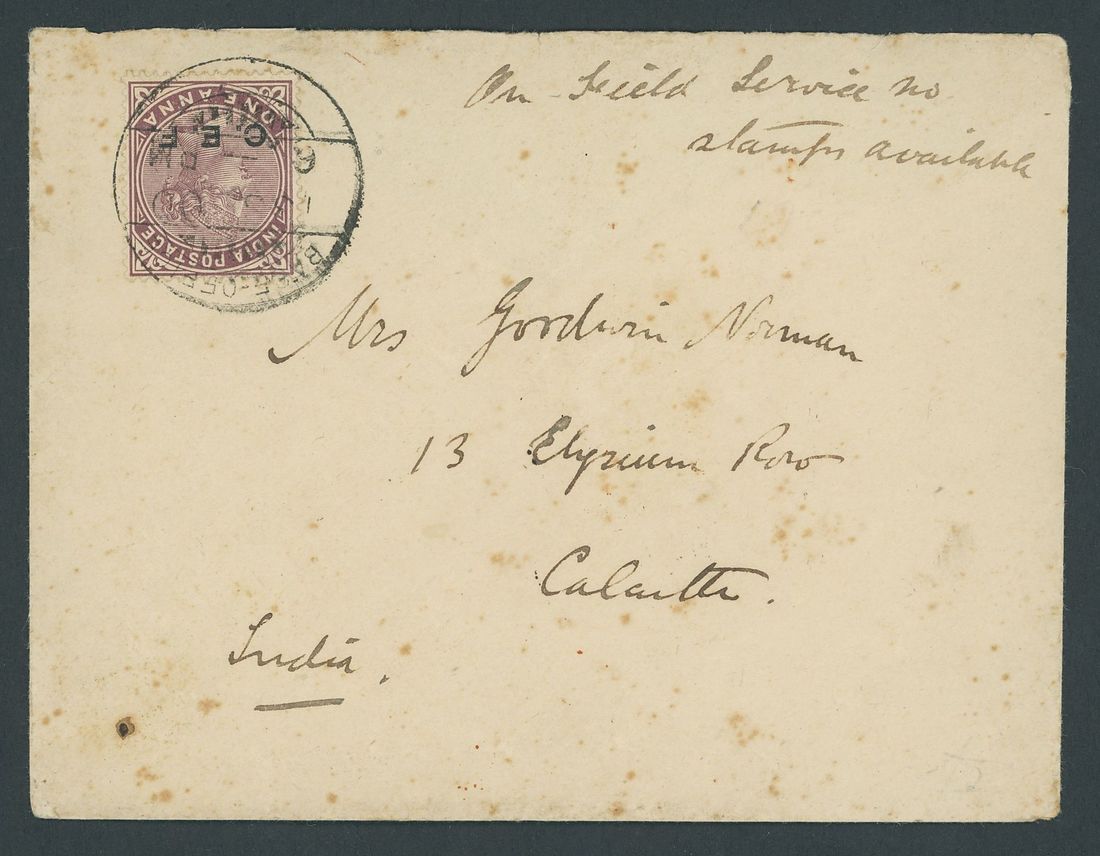 On Field Service no
stamps available
INDIA POSTAGE
C E F
ONE ANNA
BASE-OFF
Mrs Goodwin Norman
13 Elysium Row
Calcutta.
India.